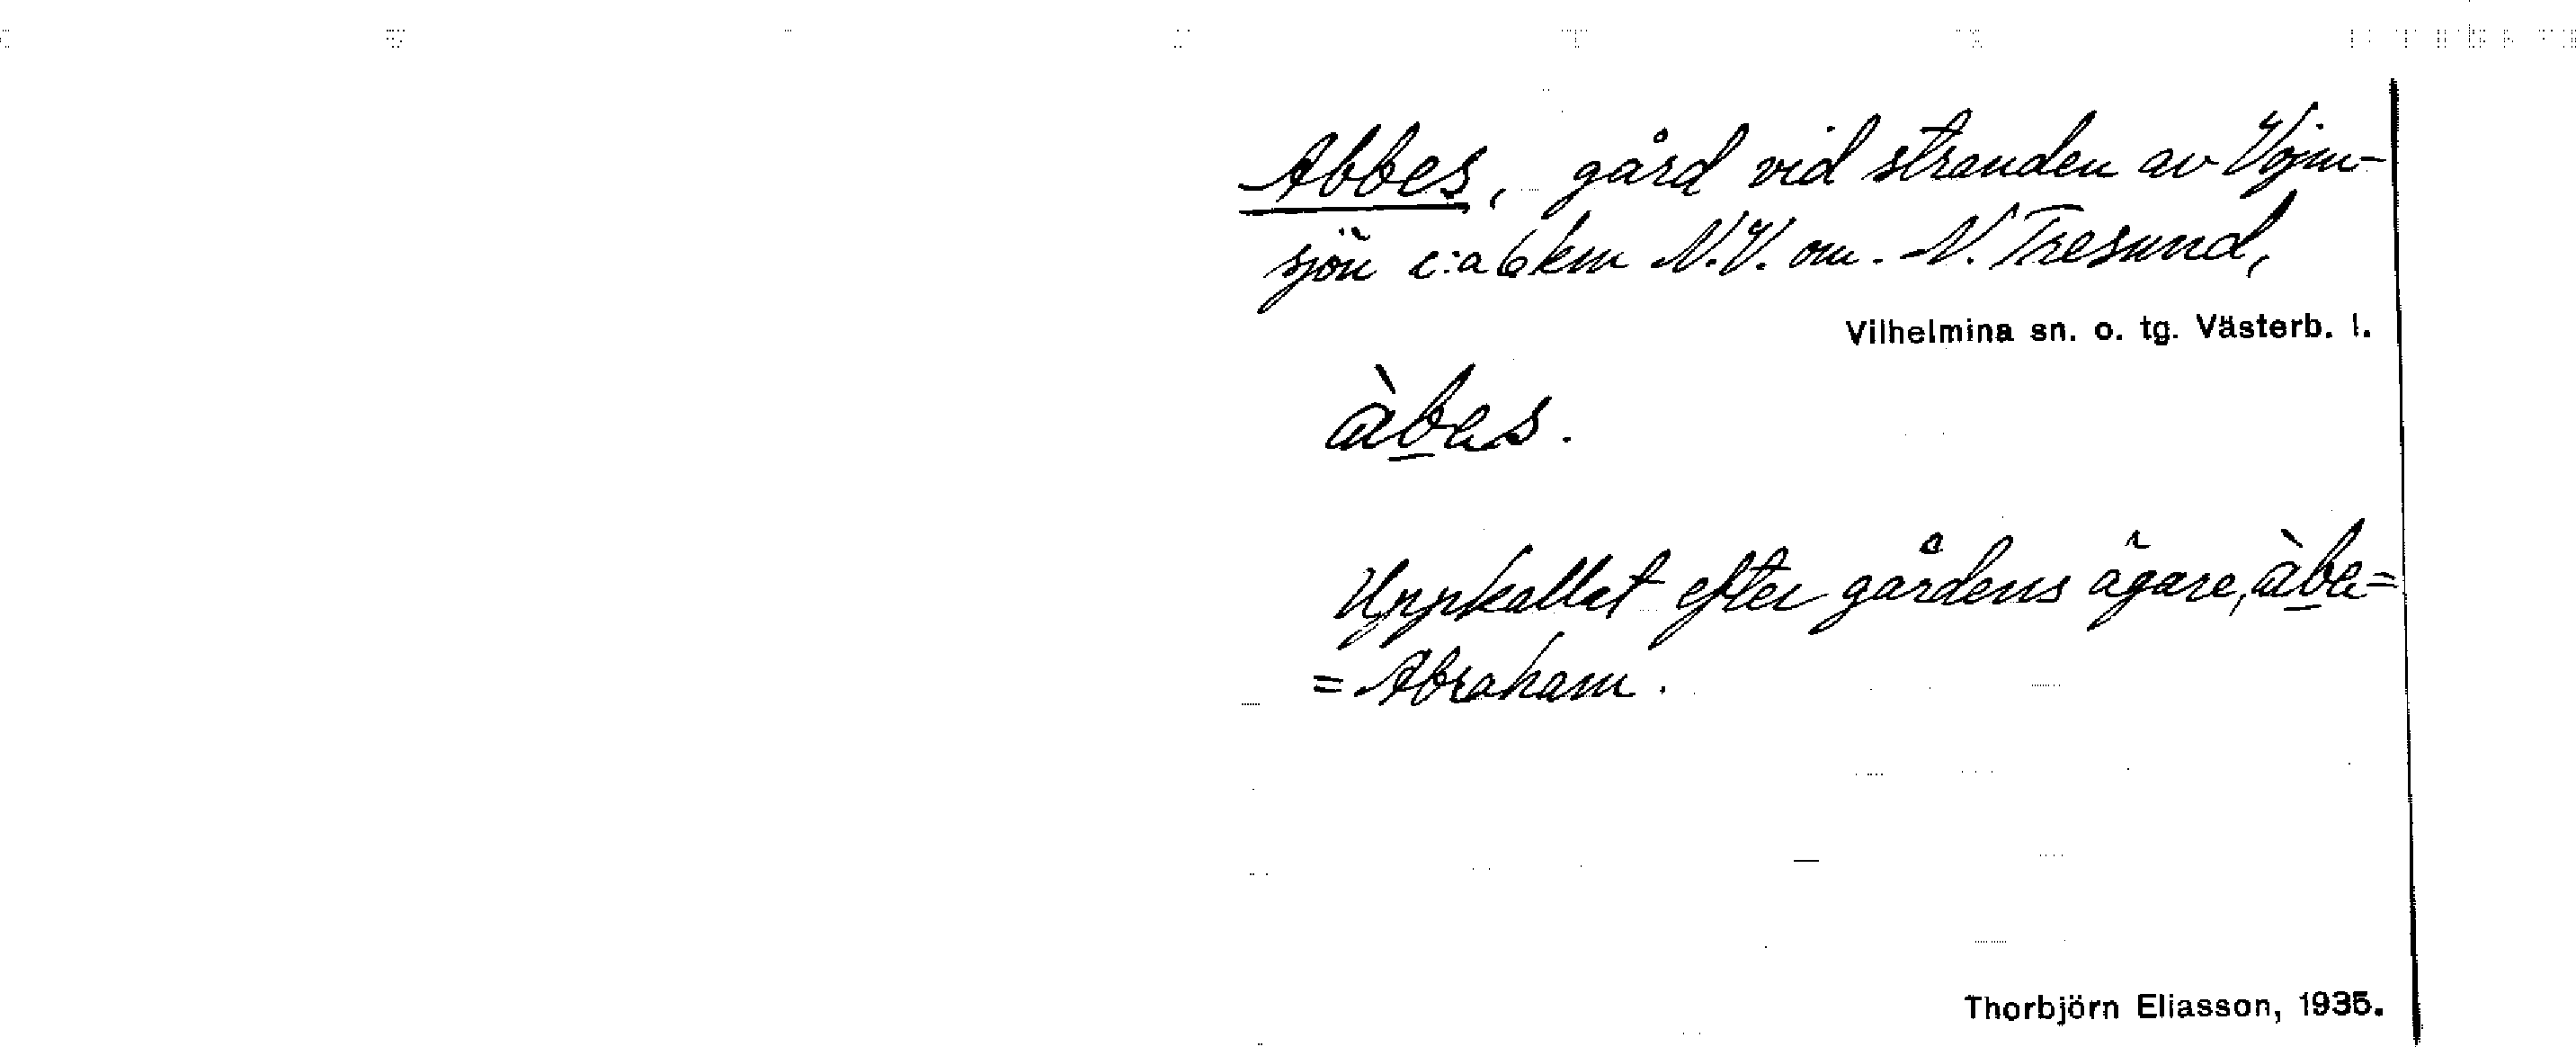 Abbes, gård vid stranden av Vojm-
sjön c:a 6 km N.V. om N. Tresund,
Vilhelmina sn. o. tg. Västerb. l.
àb̲es.
Uppkallat efter gårdens ägare, àb̲e=
= Abraham.
Thorbjörn Eliasson, 1935.